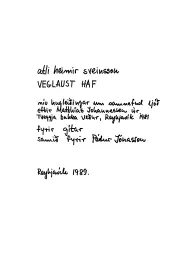 atli heimir sveinsson
VEGLAUST HAF
níu hugleiðingar um samnefnd ljóð
eftir Matthías Johannessen úr
Tveggja bakka veður, Reykjavík 1981
fyrir gítar
samið fyrir Pétur Jónasson
Reykjavík 1989.